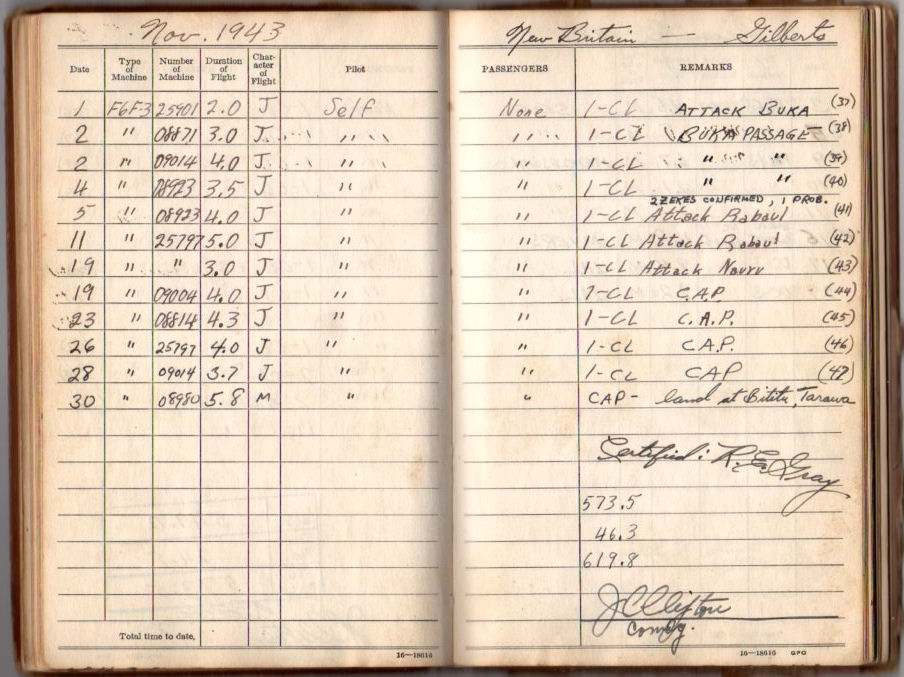 Nov. 1943 New Britain — Gilberts
Date Type of Machine Number of Machine Duration of Flight Character of Flight Pilot PASSENGERS REMARKS
1 F6F-3 25901 2.0 J Self None 1-CL ATTACK BUKA (37)
2 " 08871 3.0 J " " 1-CL BUKA PASSAGE (38)
2 " 09014 4.0 J " " 1-CL " " (39)
4 " 08923 3.5 J " " 1-CL " " (40)
2 ZEKES CONFIRMED, 1 PROB.
5 " 08923 4.0 J " " 1-CL Attack Rabaul (41)
11 " 25797 5.0 J " " 1-CL Attack Rabaul (42)
19 " " 3.0 J " " 1-CL Attack Nauru (43)
19 " 09004 4.0 J " " 1-CL C.A.P. (44)
23 " 08814 4.3 J " " 1-CL C.A.P. (45)
26 " 25797 4.0 J " " 1-CL CAP. (46)
28 " 09014 3.7 J " " 1-CL CAP (47)
30 " 08980 5.8 M " " CAP - land at Bititu, Tarawa
Certified: R. E. Gray
573.5
46.3
619.8
J C Clifton
Comdg.
Total time to date,
16—18616 16—18616 GPO